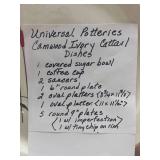 Universal Potteries
Camwood Ivory Cattail
Dishes
1 covered sugar bowl
1 coffee cup
2 saucers
1 6" round plate
2 oval platters
1 oval platter (11 x
5 round 9" plates
(1 w/ imperfection)
(1 w/ tiny chip on rim)